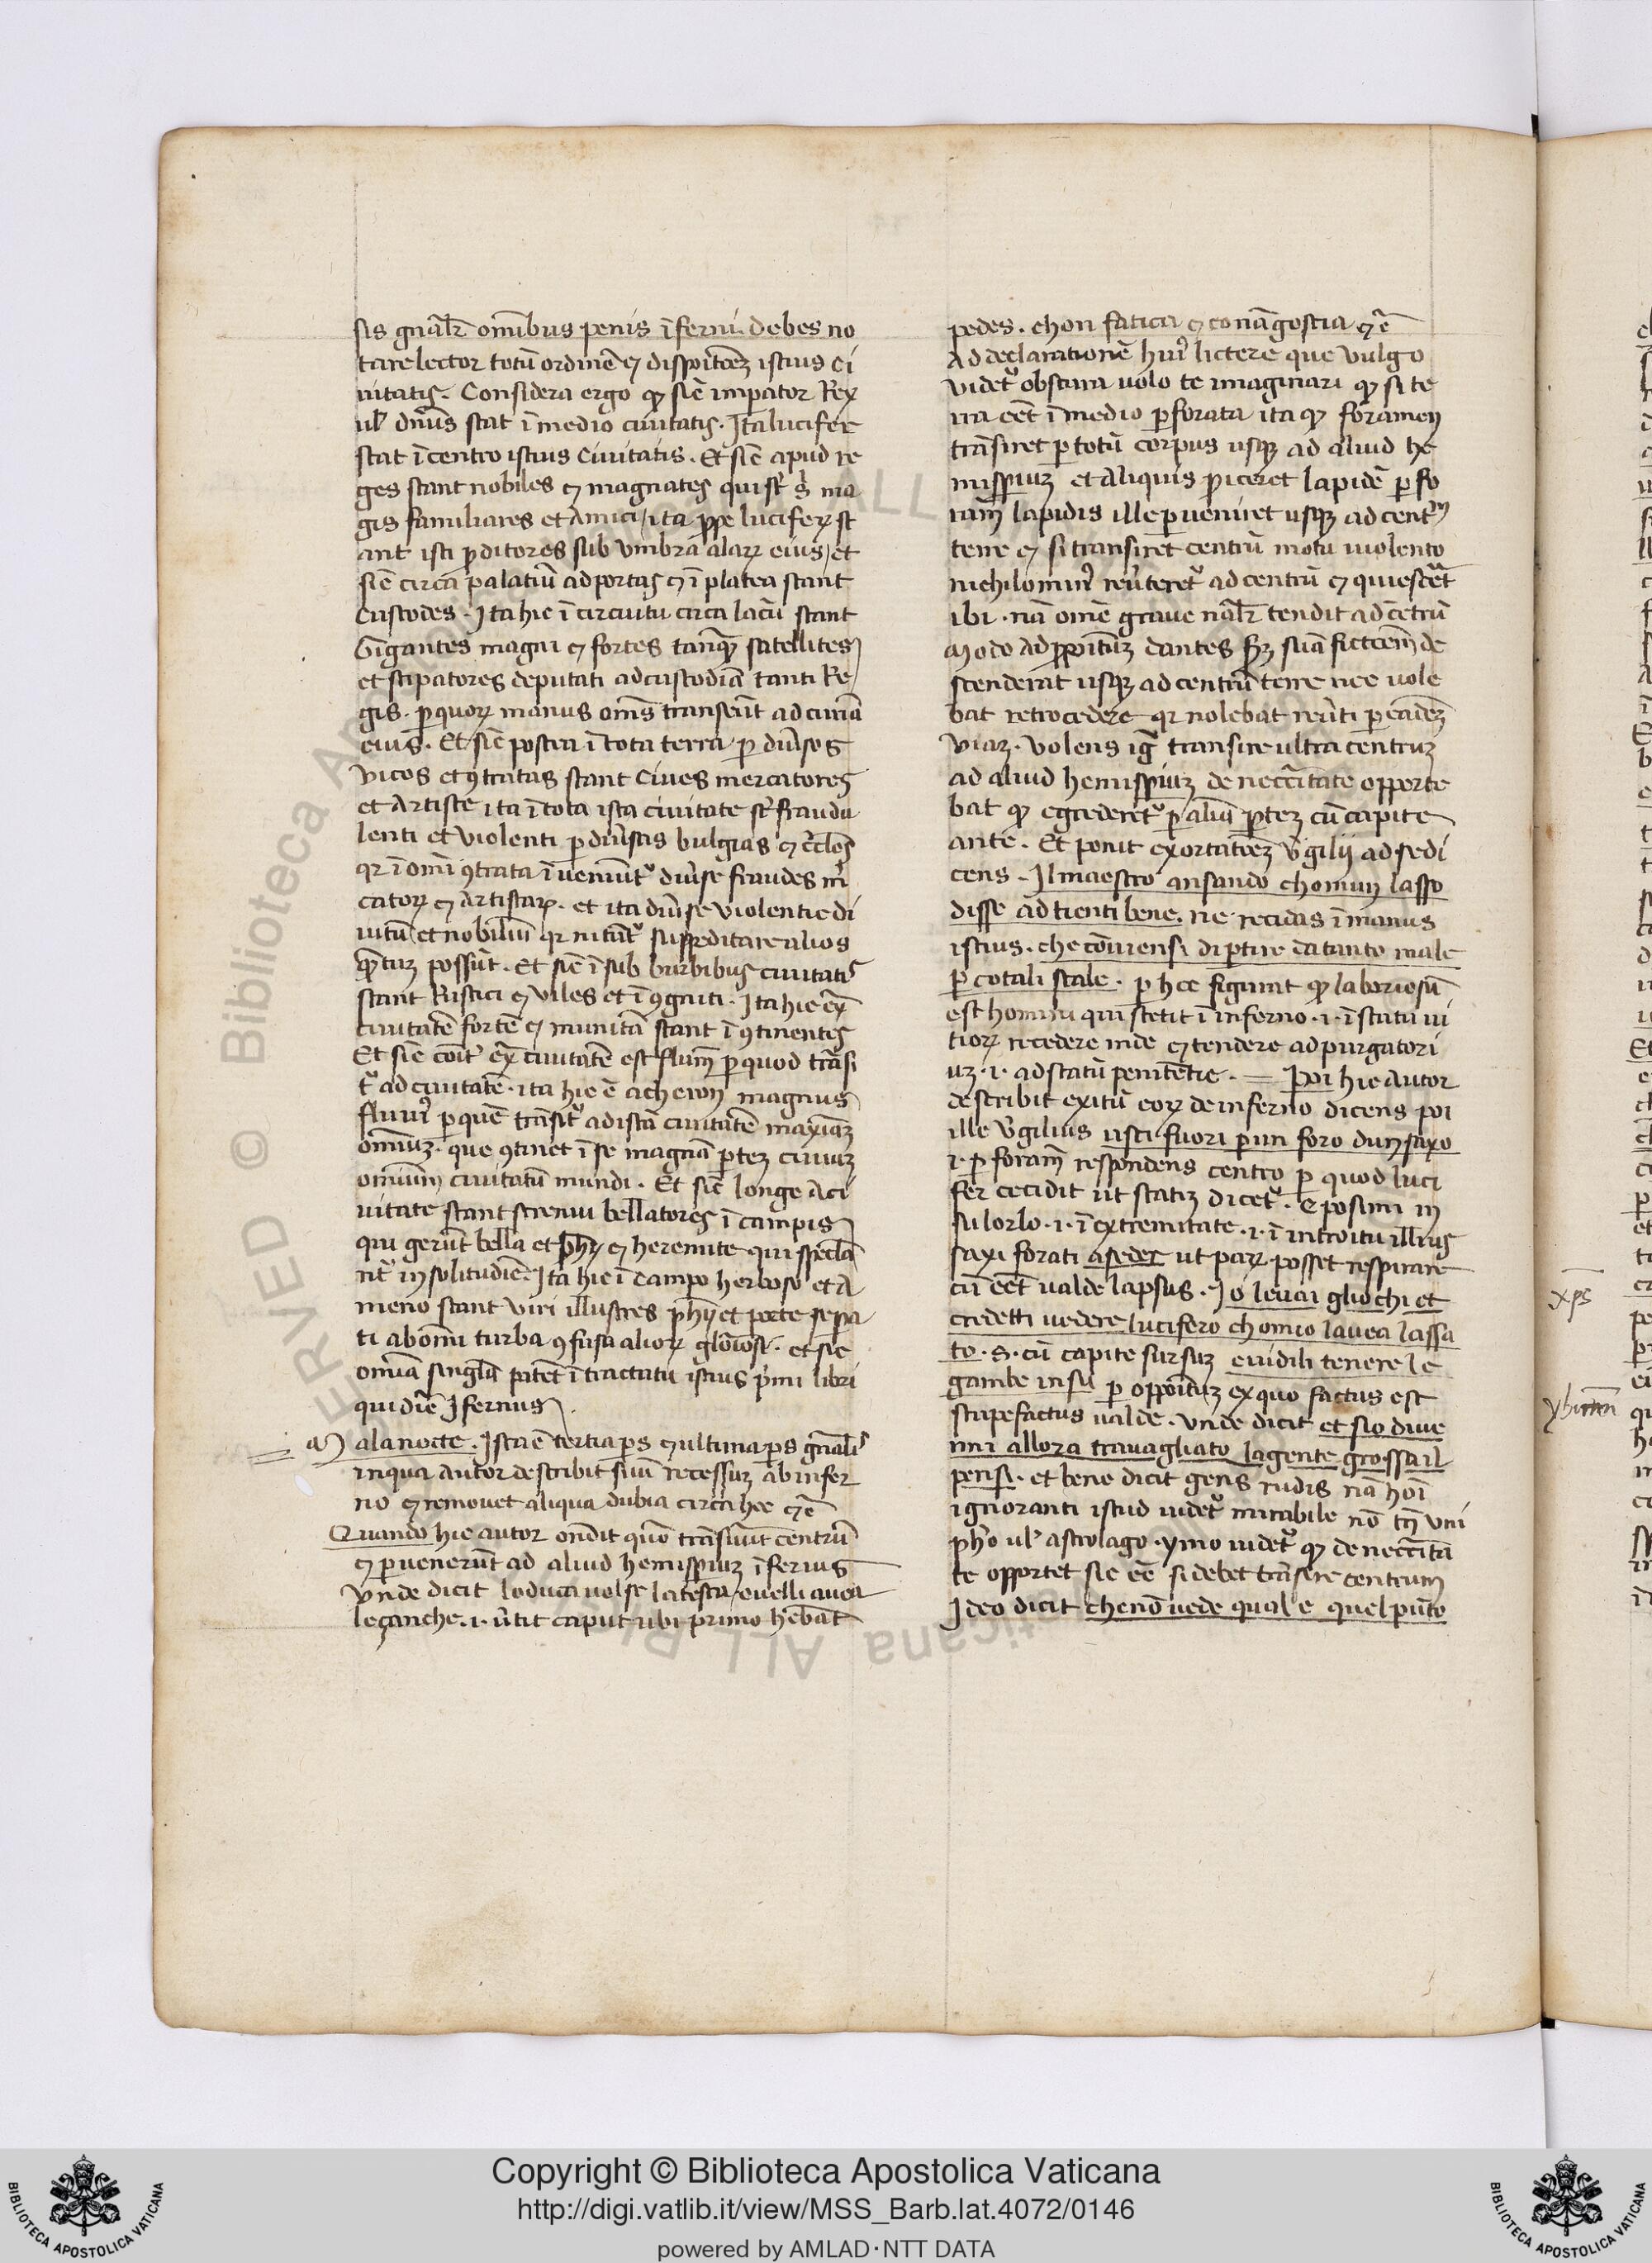 sis gnalr̄ omībus penis īferni. debes no
tare lector totū ordinē ⁊ dispoītōeȝ istius ci
uitatis. Considera ergo qꝫ sic̄ impator Rex
ul' dn̄us stat ī medio ciuitatis. Ita lucifer
stat ī centro istius Ciuitatis. Et sic̄ apud re
ges stant nobiles ⁊ magnates qui st̄ s ma
gis familiares et Amici / ita ꝓpe luciferꝝ st
ant isti ꝓditores sub vmbra alaꝝ eius / et
sic̄ circa palatiū ad portas ⁊ ī platea stant
Custodes. Ita hic ī circuitu circa lacū stant
Gigantes magni ⁊ fortes tanqꝫ satellites
et stipatores deputati ad custodiā tanti Re
gis. ꝑ quoꝝ manus om̄s transeūt ad curiā
eius. Et sic̄ postea ī tota terra ꝑ diūsos
vicos et ꝯtratas stant Ciues mercatores
et Artiste ita ī tota ista ciuitate st̄ fraudu
lenti et violenti ꝑ diūsas bulgias ⁊ c̄clos
qꝛ ī omī ꝯtrata īueniūtᷣ diūse fraudes m̄
catoꝝ ⁊ Artistaꝝ. et ita diūse violentie di
uitū et nobiliū qꝛ nitūtᷣ suppeditare alios
qꝫtuȝ possūt. Et sic̄ ī sub burbibus ciuitatis
stant Rustici ⁊ viles et īꝯgniti. Ita hic ex̄
ciuitatē fortē ⁊ munitā stant īꝯtinentes
Et sic̄ coīt' ex̄ ciuitatē est flum̄ ꝑ quod trāsi
tᷣ ad ciuitatē. ita hic ē acheron magnus
fluui' ꝑ quē trāsitᷣ ad istā ciuitatē maxiaȝ
omniuȝ. que ꝯtinet ī se magnā ꝑteȝ ciuiuȝ
omnium ciuitatū mundi. Et sic̄ longe A ci
uitate stant strenui bellatores ī campis
qui gerūt bella et phȳ ⁊ heremite qui specla
nt' in solitudīe. Ita hic ī campo herboso et A
meno stant viri illustres phȳ et poete sepa
ti ab omī turba ꝯfusa alioꝝ gl'iosi. et sic
omīa singl'a patēt ī tractatu istius p̄mi libri
qui dic̄ Ifernus.
Ma la nocte. Ista ē tertia ps ⁊ ultima ps gn̄alis
in qua Autor describit suū recessuȝ ab infer
no ⁊ remouet aliqua dubia circa hec ⁊c̄
Quando hic autor on̄dit quo trāsiuit centrū
⁊ ꝑvenerūt ad aliud hemisperiuȝ īferius
Vnde dicit loduca volse la testa / ouelli auea
leçanche .i. v̄tit caput ubi primo hēbāt
pedes. chon fatica ⁊ con āgoscia ⁊c̄
Ad declarationē hui' lictere que vulgo
videtᷣ obscura uolo te imaginari qꝫ si te
rra eēt ī medio ꝑforata ita qꝫ foramen
trāsiret ꝑ totū corpus usqꝫ ad aliud he
misperiuȝ et aliquis ꝓiceret lapidē ꝑ fo
ram̄ lapidis ille ꝑueniret usqꝫ ad centꝝ
terre ⁊ si transiret centrū motu uiolento
nichilomin' reūteretᷣ ad centrū ⁊ quiescēt
ibi. nā omē graue nālr̄ tendit ad cētrū
Modo Ad ꝓpoituȝ dantes scȝ suā fictōem̄ de
scenderat usqꝫ ad centrū terre nec uole
bat retrocedere qꝛ nolebat reūti ꝑ eādeȝ
viaȝ. Volens igr̄ transire ultra centruȝ
ad aliud hemisperiuȝ de necc̄itate opporte
bat qꝫ egrederetᷣ ꝑ aliā ꝑteȝ cū capite
ante. Et ponit exortatōeȝ v̄gilij ad se di
cens. Il maestro ansando chomun lasso
disse ad tienti bene. ne recidas ī manus
istius. che cōuiensi di ꝑtire da tanto male
ꝑ cotali scale. ꝑ hec figurat qꝫ laboriosū
est homini qui stetit ī inferno .i. ī statu ui
tioꝝ recedere inde ⁊ tendere ad purgatori
uȝ .i. ad statū penitētie. = Poi hic Autor
describit exitū eoꝝ de inferno dicens poi
ille v̄gilius usci fuori ꝑ un foro dun saxo
.i. ꝑ foram̄ respondens centro ꝑ quod luci
fer cecidit ut statiȝ dicetᷣ. e posimi in
su lorlo .i. ī extremitate .i. ī introitu illius
saxi forati aseder ut paꝝ posset respirare
cū eēt ualde lapsus. Io leuai gliochi et
credetti uedere lucifero chomio lauea lassa
to. s. cū capite sursuȝ euidili tenere le
gambe insu ꝑ oppoituȝ ex quo factus est
stupefactus ualde. Vnde dicit et sio diue
nni allora trauagliato lagente grossa il
pensi. et bene dicit gens rudis nā hoī
ignoranti istud uidetᷣ mirabile nō tn̄ vni
pho ul' astrologo. ymo uidetᷣ qꝫ de necc̄ita
te opportet sic eē si debet trāsire centrum
Ideo dicit che nō uede qual e quel pūto
xp̄s
Copyright © Biblioteca Apostolica Vaticana
http://digi.vatlib.it/view/MSS_Barb.lat.4072/0146
powered by AMLAD·NTT DATA